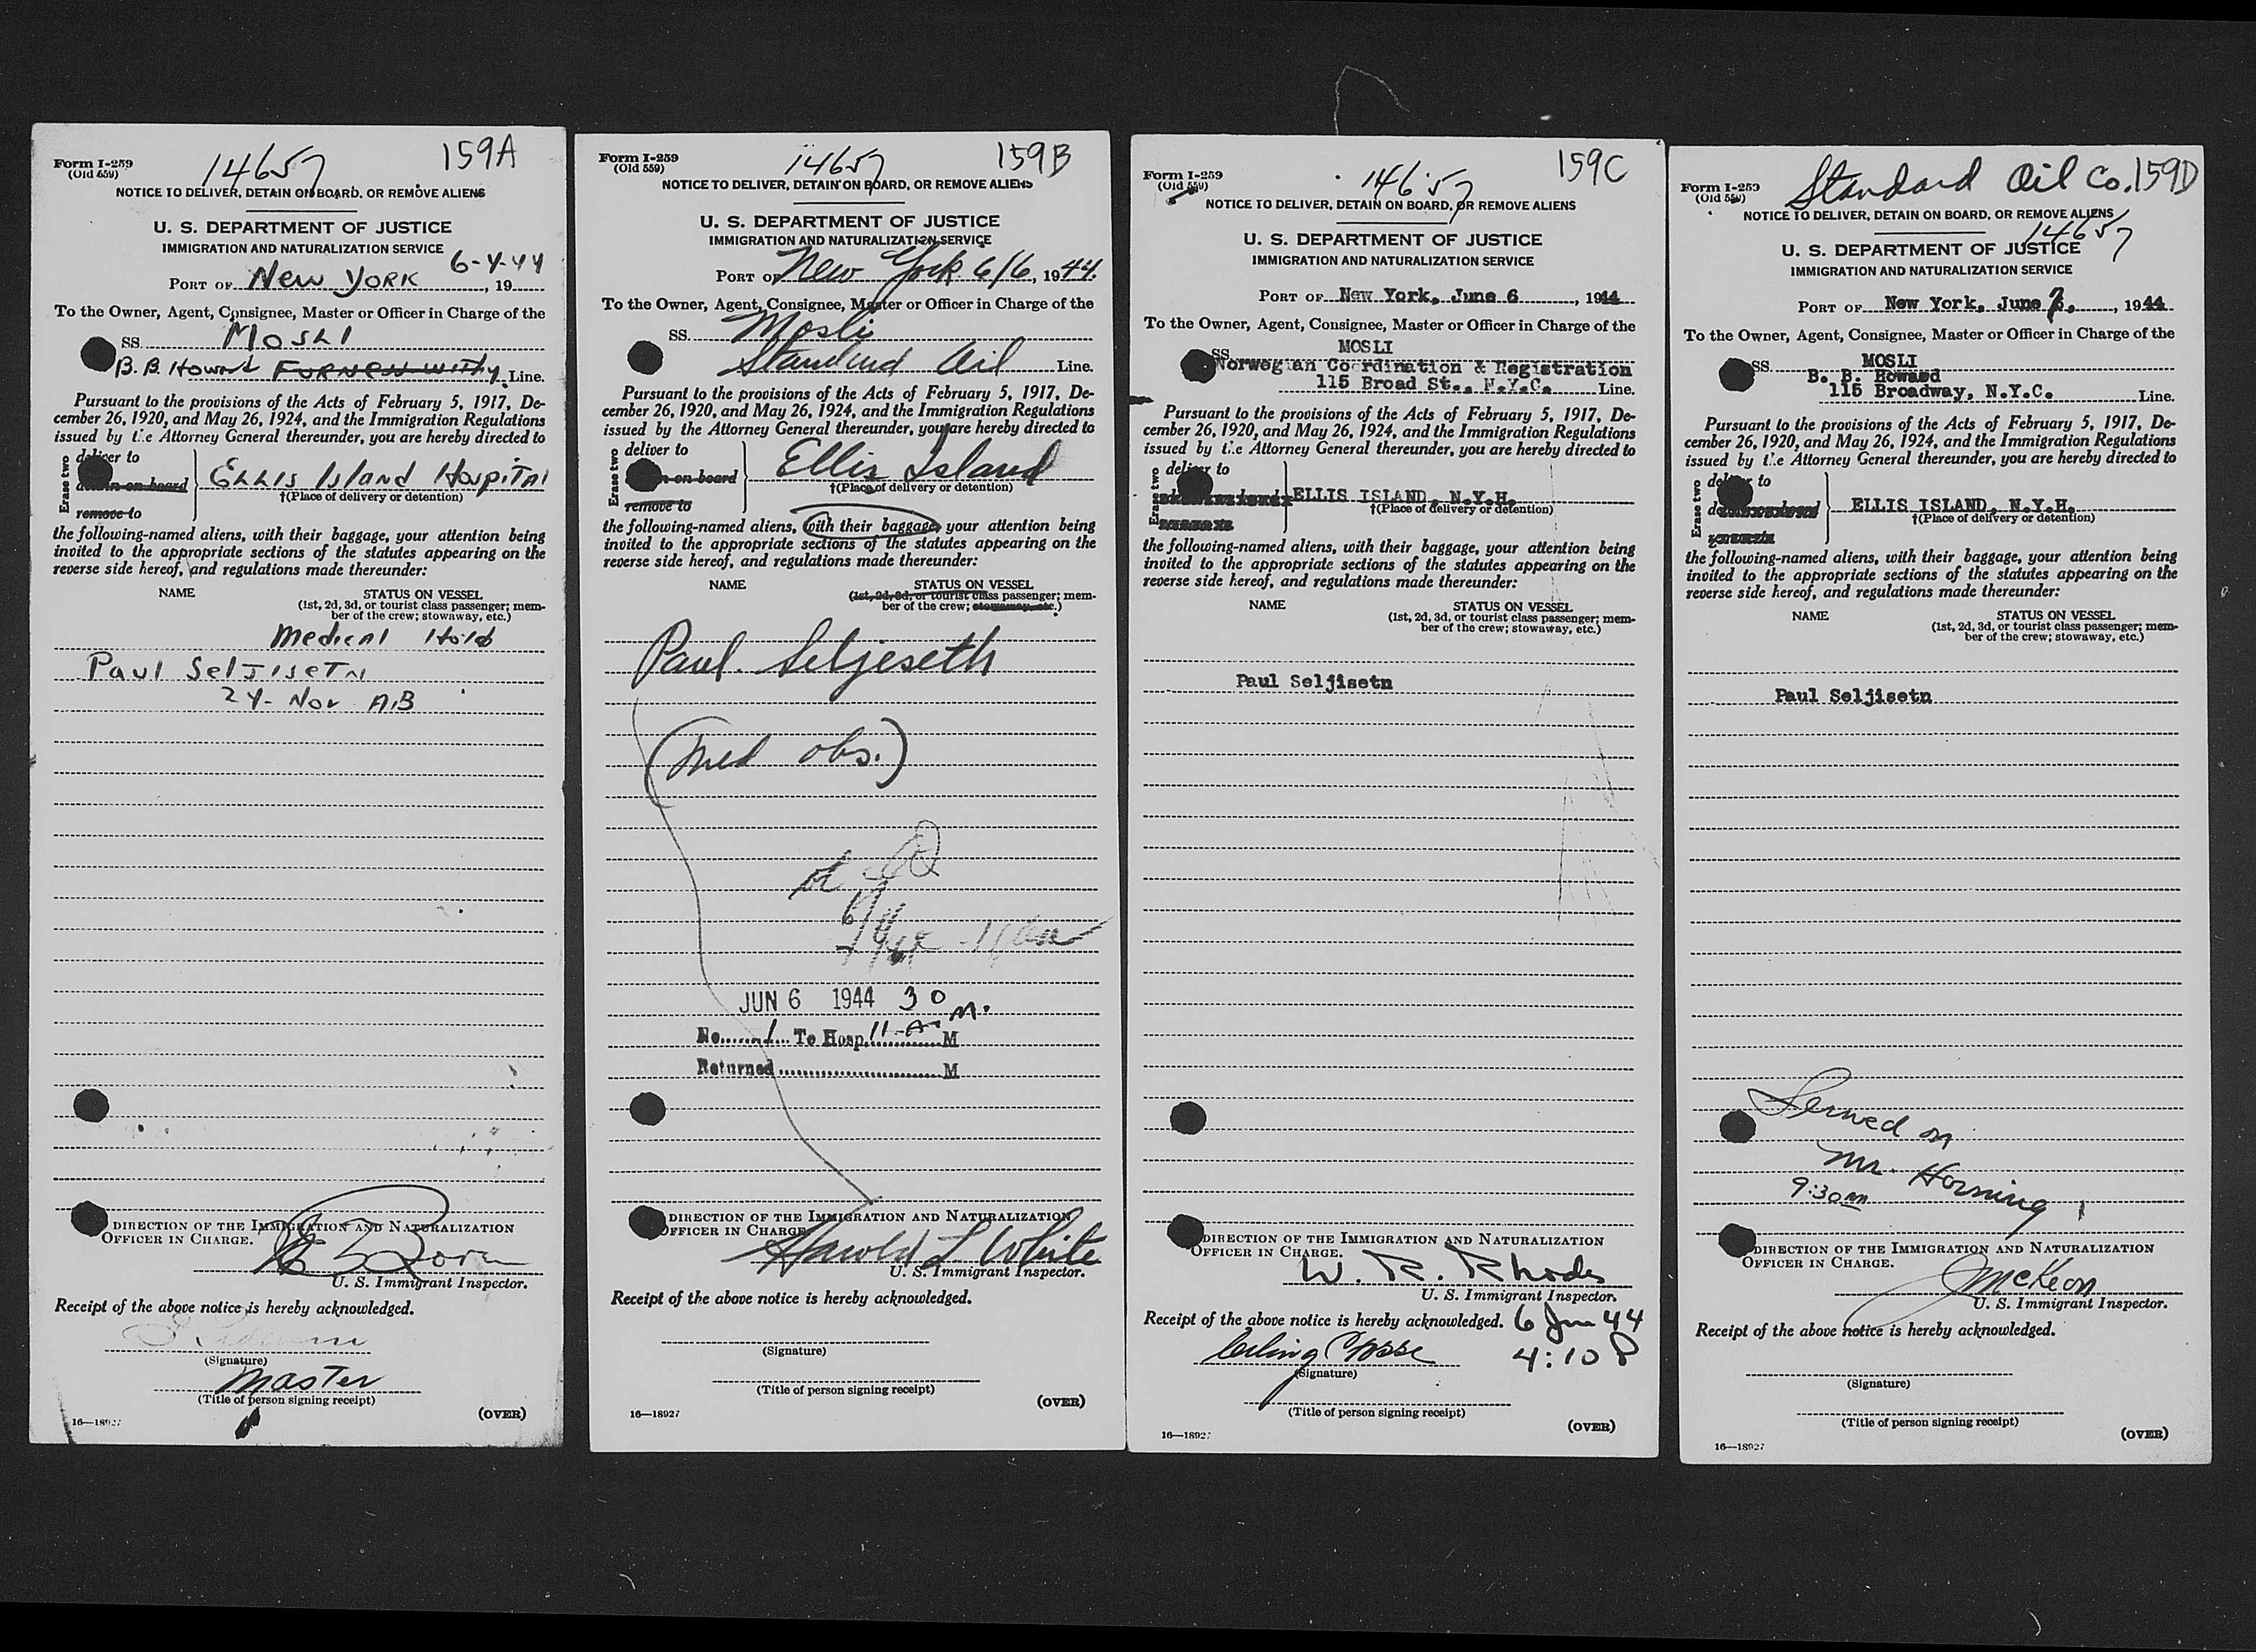 Form I-259
(Old 559)
14657
159A
NOTICE TO DELIVER, DETAIN ON BOARD, OR REMOVE ALIENS
U. S. DEPARTMENT OF JUSTICE
IMMIGRATION AND NATURALIZATION SERVICE
6-4-44
PORT OF New YORK, 19
To the Owner, Agent, Consignee, Master or Officer in Charge of the
SS. MOSLI
B. B. Howard FURNESS WITHY Line.
Pursuant to the provisions of the Acts of February 5, 1917, De-
cember 26, 1920, and May 26, 1924, and the Immigration Regulations
issued by the Attorney General thereunder, you are hereby directed to
Erase two
deliver to
on board
ELLIS Island HospiTAl
†(Place of delivery or detention)
remove to
the following-named aliens, with their baggage, your attention being
invited to the appropriate sections of the statutes appearing on the
reverse side hereof, and regulations made thereunder:
NAME STATUS ON VESSEL
(1st, 2d, 3d, or tourist class passenger; mem-
ber of the crew; stowaway, etc.)
Medical Hold
Paul SelJiseTN
24- Nor AB
DIRECTION OF THE IMMIGRATION AND NATURALIZATION
OFFICER IN CHARGE.
U. S. Immigrant Inspector.
Receipt of the above notice is hereby acknowledged.
(Signature)
Master
(Title of person signing receipt)
16—18927
(OVER)
Form I-259
(Old 559)
14657
159B
NOTICE TO DELIVER, DETAIN ON BOARD, OR REMOVE ALIENS
U. S. DEPARTMENT OF JUSTICE
IMMIGRATION AND NATURALIZATION SERVICE
PORT OF New York 6/6, 1944.
To the Owner, Agent, Consignee, Master or Officer in Charge of the
SS. Mosli
Standard Oil Line.
Pursuant to the provisions of the Acts of February 5, 1917, De-
cember 26, 1920, and May 26, 1924, and the Immigration Regulations
issued by the Attorney General thereunder, you are hereby directed to
Erase two
deliver to
on board
Ellis Island
†(Place of delivery or detention)
remove to
the following-named aliens, with their baggage, your attention being
invited to the appropriate sections of the statutes appearing on the
reverse side hereof, and regulations made thereunder:
NAME STATUS ON VESSEL
(1st, 2d, 3d, or tourist class passenger; mem-
ber of the crew; stowaway, etc.)
Paul. Seljeseth
(Med obs.)
JUN 6 1944 30
No. 1 To Hosp. 11-A M.
M
Returned M
DIRECTION OF THE IMMIGRATION AND NATURALIZATION
OFFICER IN CHARGE
Harold L White
U. S. Immigrant Inspector.
Receipt of the above notice is hereby acknowledged.
(Signature)
(Title of person signing receipt)
(OVER)
16—18927
Form I-259
(Old 559)
14657
159C
NOTICE TO DELIVER, DETAIN ON BOARD, OR REMOVE ALIENS
U. S. DEPARTMENT OF JUSTICE
IMMIGRATION AND NATURALIZATION SERVICE
PORT OF New York, June 6, 1944
To the Owner, Agent, Consignee, Master or Officer in Charge of the
SS. MOSLI
Norwegian Coordination & Registration
115 Broad St., N.Y.C. Line.
Pursuant to the provisions of the Acts of February 5, 1917, De-
cember 26, 1920, and May 26, 1924, and the Immigration Regulations
issued by the Attorney General thereunder, you are hereby directed to
Erase two
deliver to
ELLIS ISLAND, N.Y.H.
†(Place of delivery or detention)
the following-named aliens, with their baggage, your attention being
invited to the appropriate sections of the statutes appearing on the
reverse side hereof, and regulations made thereunder:
NAME STATUS ON VESSEL
(1st, 2d, 3d, or tourist class passenger; mem-
ber of the crew; stowaway, etc.)
Paul Seljisetn
DIRECTION OF THE IMMIGRATION AND NATURALIZATION
OFFICER IN CHARGE.
W. R. Rhodes
U. S. Immigrant Inspector.
Receipt of the above notice is hereby acknowledged. 6 Jun 44
4:10 P
(Signature)
(Title of person signing receipt)
(OVER)
16—18927
Form I-259
(Old 559)
Standard Oil Co. 159D
NOTICE TO DELIVER, DETAIN ON BOARD, OR REMOVE ALIENS
14657
U. S. DEPARTMENT OF JUSTICE
IMMIGRATION AND NATURALIZATION SERVICE
PORT OF New York, June 7, 1944
To the Owner, Agent, Consignee, Master or Officer in Charge of the
SS. MOSLI
B. B. Howard
115 Broadway, N.Y.C. Line.
Pursuant to the provisions of the Acts of February 5, 1917, De-
cember 26, 1920, and May 26, 1924, and the Immigration Regulations
issued by the Attorney General thereunder, you are hereby directed to
Erase two
deliver to
ELLIS ISLAND, N.Y.H.
†(Place of delivery or detention)
the following-named aliens, with their baggage, your attention being
invited to the appropriate sections of the statutes appearing on the
reverse side hereof, and regulations made thereunder:
NAME STATUS ON VESSEL
(1st, 2d, 3d, or tourist class passenger; mem-
ber of the crew; stowaway, etc.)
Paul Seljisetn
Served on
Mr. Horning
9:30am
DIRECTION OF THE IMMIGRATION AND NATURALIZATION
OFFICER IN CHARGE.
J McKeon
U. S. Immigrant Inspector.
Receipt of the above notice is hereby acknowledged.
(Signature)
(Title of person signing receipt)
(OVER)
16—18927